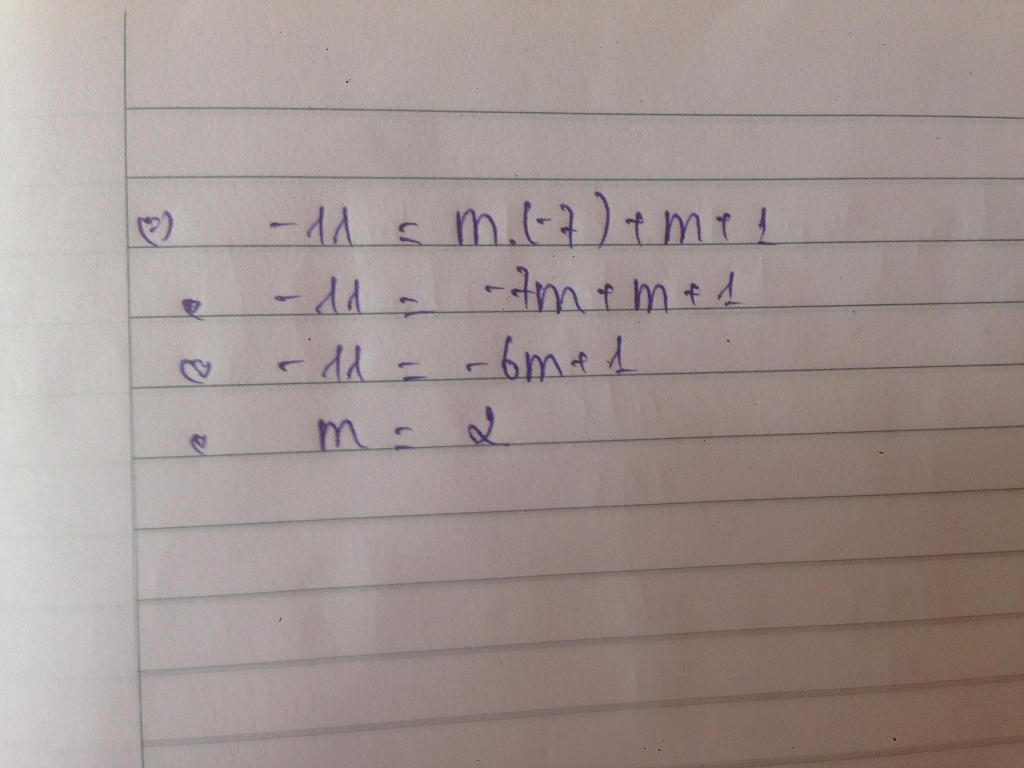 ⇔ -11 = m.(-7) + m + 1
⇔ -11 = -7m + m + 1
⇔ -11 = -6m + 1
⇔ m = 2